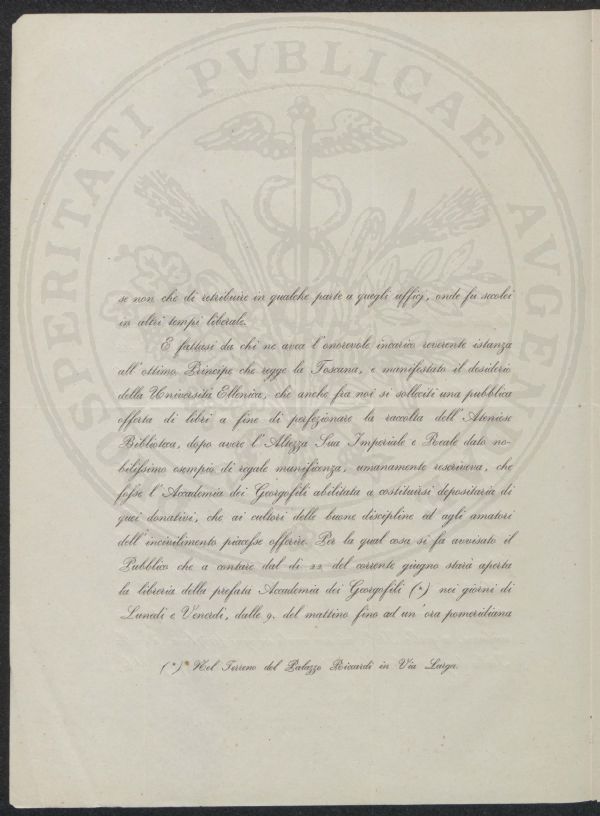 PROSPERITATI PVBLICAE AVGENDAE
se non che di retribuire in qualche parte a quegli ufficj, onde fu secolei
in altri tempi liberale.
E fattasi da chi ne avea l'onorevole incarico reverente istanza
all'ottimo Principe che regge la Toscana, e manifestato il desiderio
della Università Ellenica, che anche fra noi si solleciti una pubblica
offerta di libri a fine di perfezionare la raccolta dell'Ateniese
Biblioteca, dopo avere l'Altezza Sua Imperiale e Reale dato no-
bilissimo esempio di regale munificenza, umanamente rescriveva, che
fosse l'Accademia dei Georgofili abilitata a costituirsi depositaria di
quei donativi, che ai cultori delle buone discipline ed agli amatori
dell'incivilimento piacesse offerire. Per la qual cosa si fa avvisato il
Pubblico che a contare dal dì 22. del corrente giugno starà aperta
la libreria della prefata Accademia dei Georgofili (*) nei giorni di
Lunedì e Venerdì, dalle 9. del mattino fino ad un'ora pomeridiana
(*) Nel Terreno del Palazzo Riccardi in Via Larga.